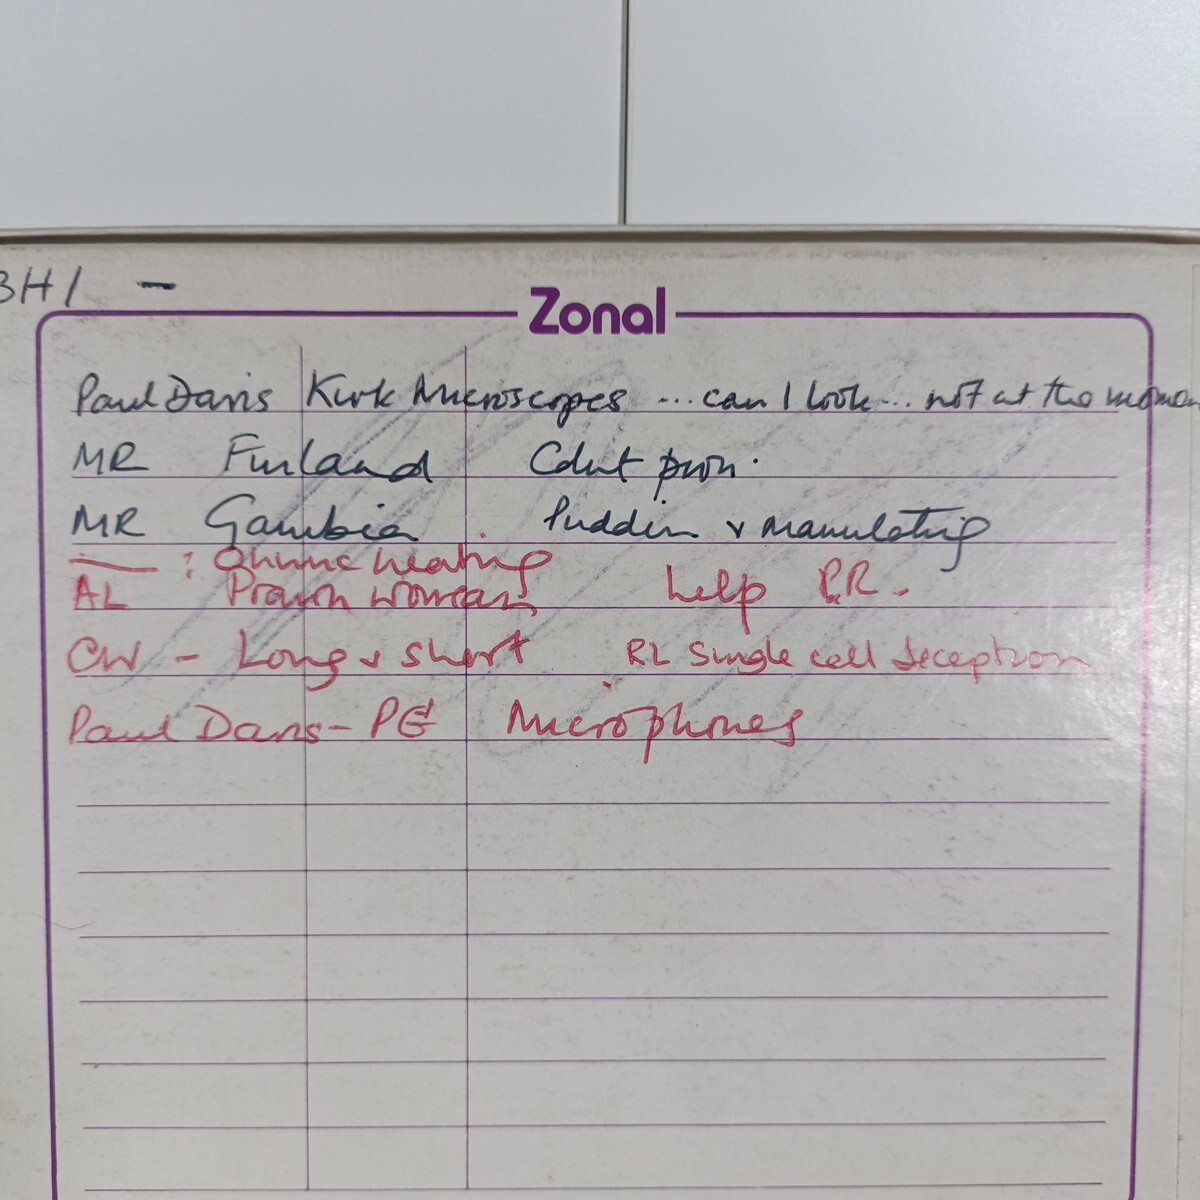 BH1 -
Zonal
Paul Davis Kirk Microscopes ... can I look ... not at the momen
MR Finland
MR Gambia Puddin &
: Ohmic heating
AL Prawn woman help PR.
CW - Long & short RL Single cell deception
Paul Davis - PE Microphones